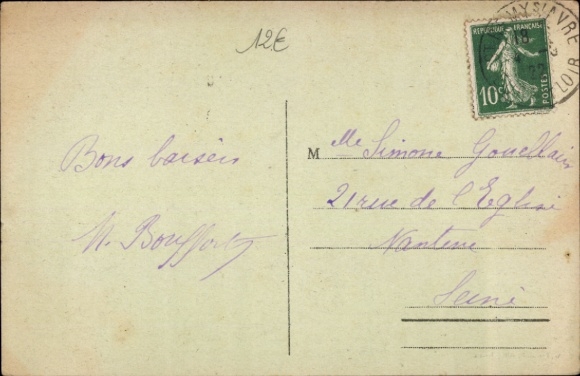 12€
REPUBLIQUE FRANÇAISE
10c
POSTES
MY S/ AVRE
LOIR
Bons baisers
M lle Simone Gouellain
21 rue de l'Eglise
Nanterre
Seine